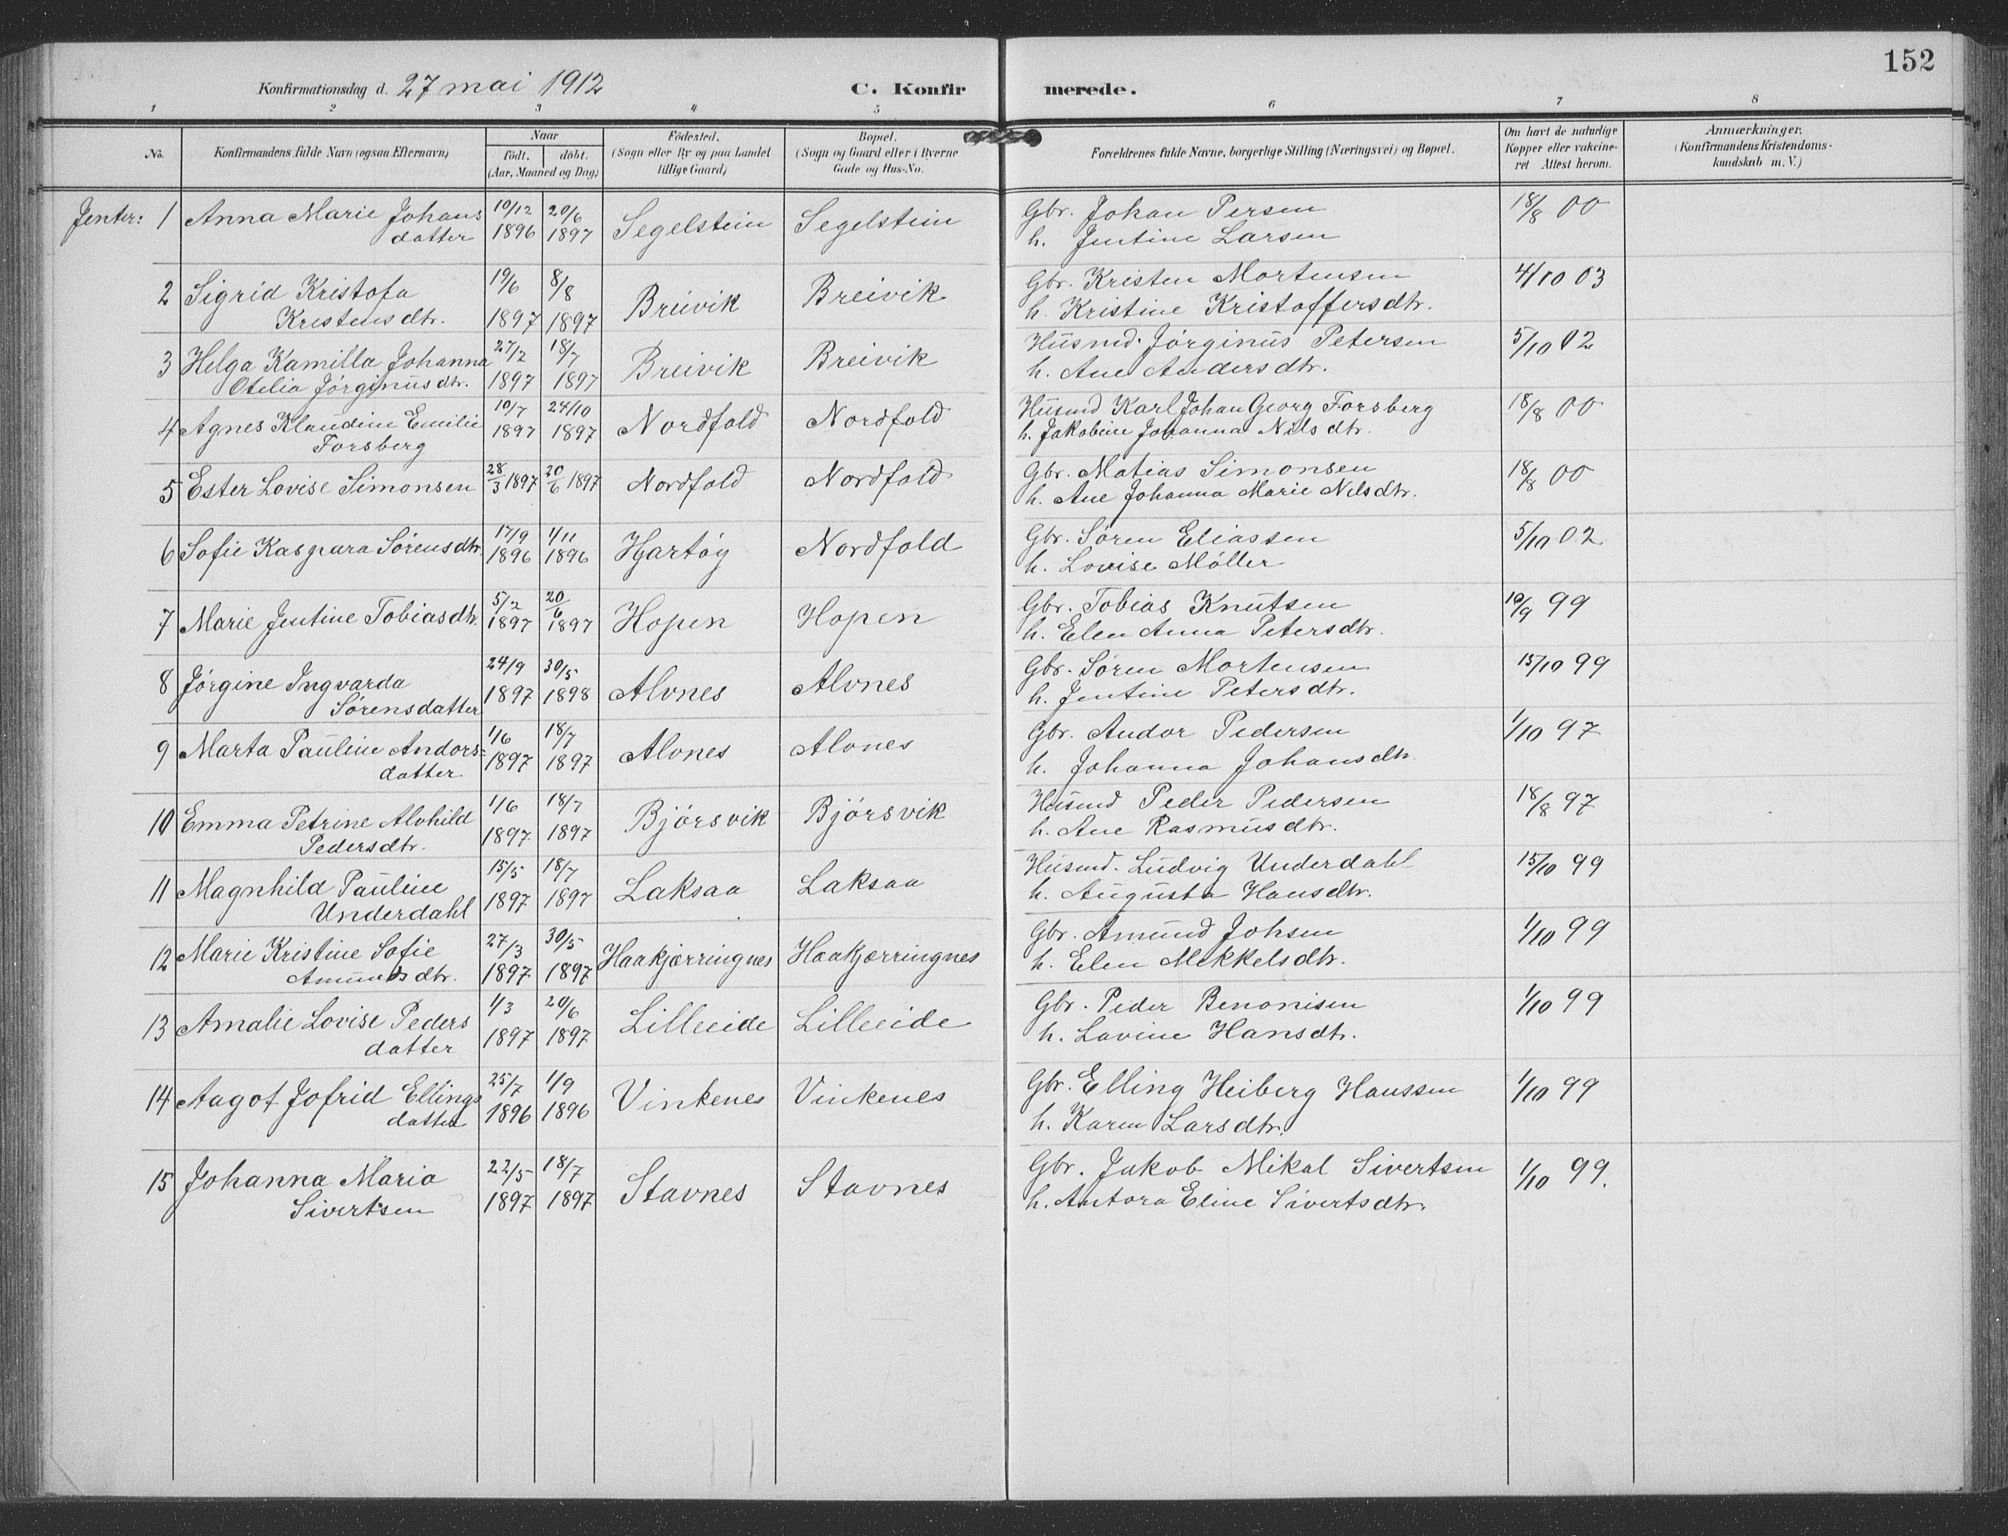 152
Konfirmationsdag d. 27 mai 1912 C. Konfirmerede.
1 2 3 4 5 6 7 8
No. Konfirmandens fulde Navn (ogsaa Efternavn) Naar födt. döbt. (Aar, Maaned og Dag) Födested. (Sogn eller By og paa Landet tillige Gaard) Bopæl. (Sogn og Gaard eller i Byerne Gade og Hus-No. Forældrenes fulde Navne, borgerlige Stilling (Næringsvei) og Bopæl. Om havt de naturlige Kopper eller vakcineret Attest herom. Anmærkninger. (Konfirmandens Kristendomskundskab m. V.)
Jenter: 1 Anna Marie Johans 10/12 20/6 Segelstein Segelstein Gbr. Johan Persen 18/8 00
datter 1896 1897 h. Jentine Larsen
2 Sigrid Kristofa 19/6 8/8 Breivik Breivik Gbr. Kristen Mortensen 4/10 03
Kristensdtr. 1897 1897 h. Kristine Kristoffersdtr.
3 Helga Kamilla Johanna 27/2 18/7 Breivik Breivik Husmd. Jørginus Petersen 5/10 02
Otelia Jørginusdtr. 1897 1897 h. Ane Andersdtr.
4 Agnes Klaudine Emilie 10/7 24/10 Nordfold Nordfold Husmd Karl Johan Georg Forsberg 18/8 00
Forsberg 1897 1897 h. Jakobine Johanna Nilsdtr.
5 Ester Lovise Simonsen 28/3 1897 20/6 1897 Nordfold Nordfold Gbr. Matias Simonsen 18/8 00
h. Ane Johanna Marie Nilsdtr.
6 Sofie Kaspara Sørensdtr. 17/9 1/11 Hjartøy Nordfold Gbr. Søren Eliassen 5/10 02
1896 1896 h. Lovise Møller
7 Marie Jentine Tobiasdtr. 5/2 20/6 Hopen Hopen Gbr. Tobias Knutsen 10/9 99
1897 1897 h. Elen Anna Petersdtr.
8 Jørgine Ingvarda 24/9 30/5 Alvnes Alvnes Gbr. Søren Mortensen 15/10 99
Sørensdatter 1897 1898 h. Jentine Petersdtr.
9 Marta Pauline Andors= 1/6 18/7 Alvnes Alvnes Gbr. Andor Pedersen 1/10 97
datter 1897 1897 h. Johanna Johansdtr.
10 Emma Petrine Alvhild 1/6 18/7 Bjørsvik Bjørsvik Husmd Peder Pedersen 18/8 97
Pedersdtr. 1897 1897 h. Ane Rasmusdtr.
11 Magnhild Pauline 15/5 18/7 Laksaa Laksaa Husmd. Ludvig Underdahl 15/10 99
Underdahl 1897 1897 h. Augusta Hansdtr.
12 Marie Kristine Sofie 27/3 30/5 Haakjærringnes Haakjærringnes Gbr. Amund Johsen 1/10 99
Amundsdtr. 1897 1897 h. Elen Mekkelsdtr.
13 Amalie Lovise Peders 1/3 20/6 Lilleeide Lilleeide Gbr. Peder Benonisen 1/10 99
datter 1897 1897 h. Lavine Hansdtr.
14 Aagot Jofrid Ellings 25/7 1/9 Vinkenes Vinkenes Gbr. Elling Heiberg Hanssen 1/10 99
datter 1896 1896 h. Karen Larsdtr.
15 Johanna Maria 22/5 18/7 Stavnes Stavnes Gbr. Jakob Mikal Sivertsen 1/10 99.
Sivertsen 1897 1897 h. Antora Eline Sivertsdtr.